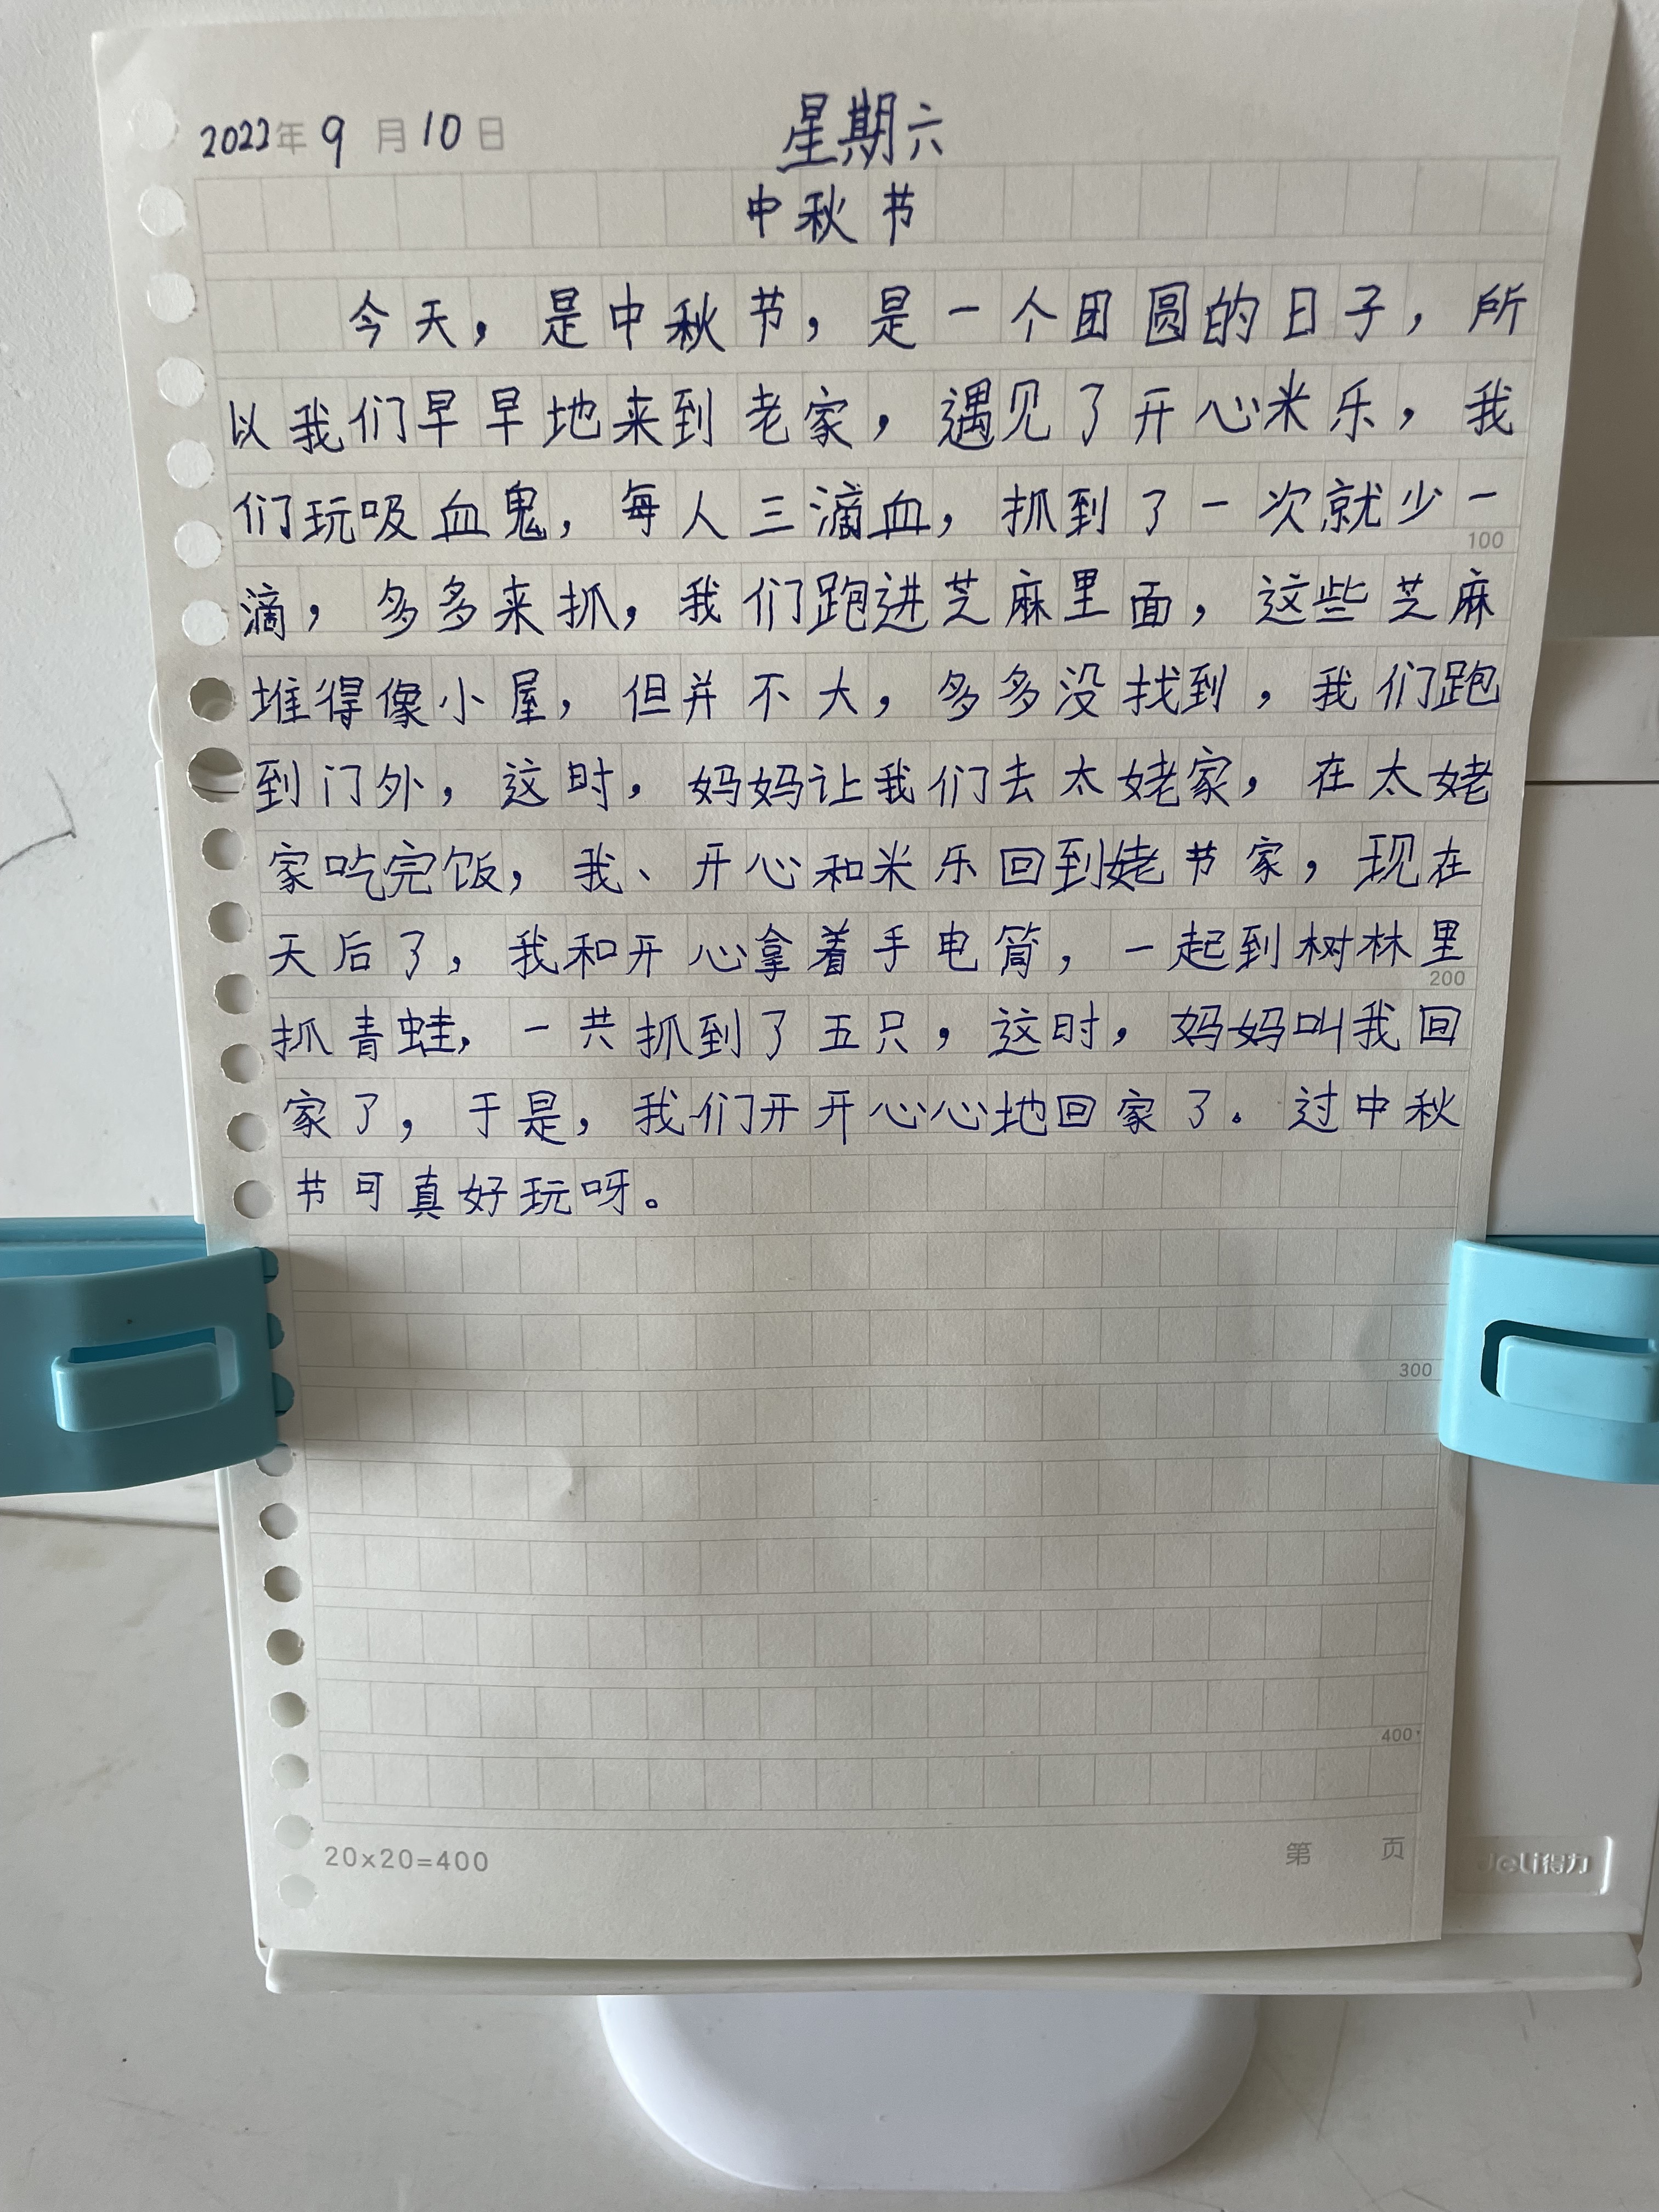 2022年 9 月 10 日 星期六
中秋节
今天，是中秋节，是一个团圆的日子，所
以我们早早地来到老家，遇见了开心米乐，我
们玩吸血鬼，每人三滴血，抓到了一次就少一
100
滴，多多来抓，我们跑进芝麻里面，这些芝麻
堆得像小屋，但并不大，多多没找到，我们跑
到门外，这时，妈妈让我们去太姥家，在太姥
家吃完饭，我、开心和米乐回到姥爷家，现在
天后了，我和开心拿着手电筒，一起到树林里
200
抓青蛙，一共抓到了五只，这时，妈妈叫我回
家了，于是，我们开开心心地回家了。过中秋
节可真好玩呀。
300
400
20x20=400 第 页
deli得力